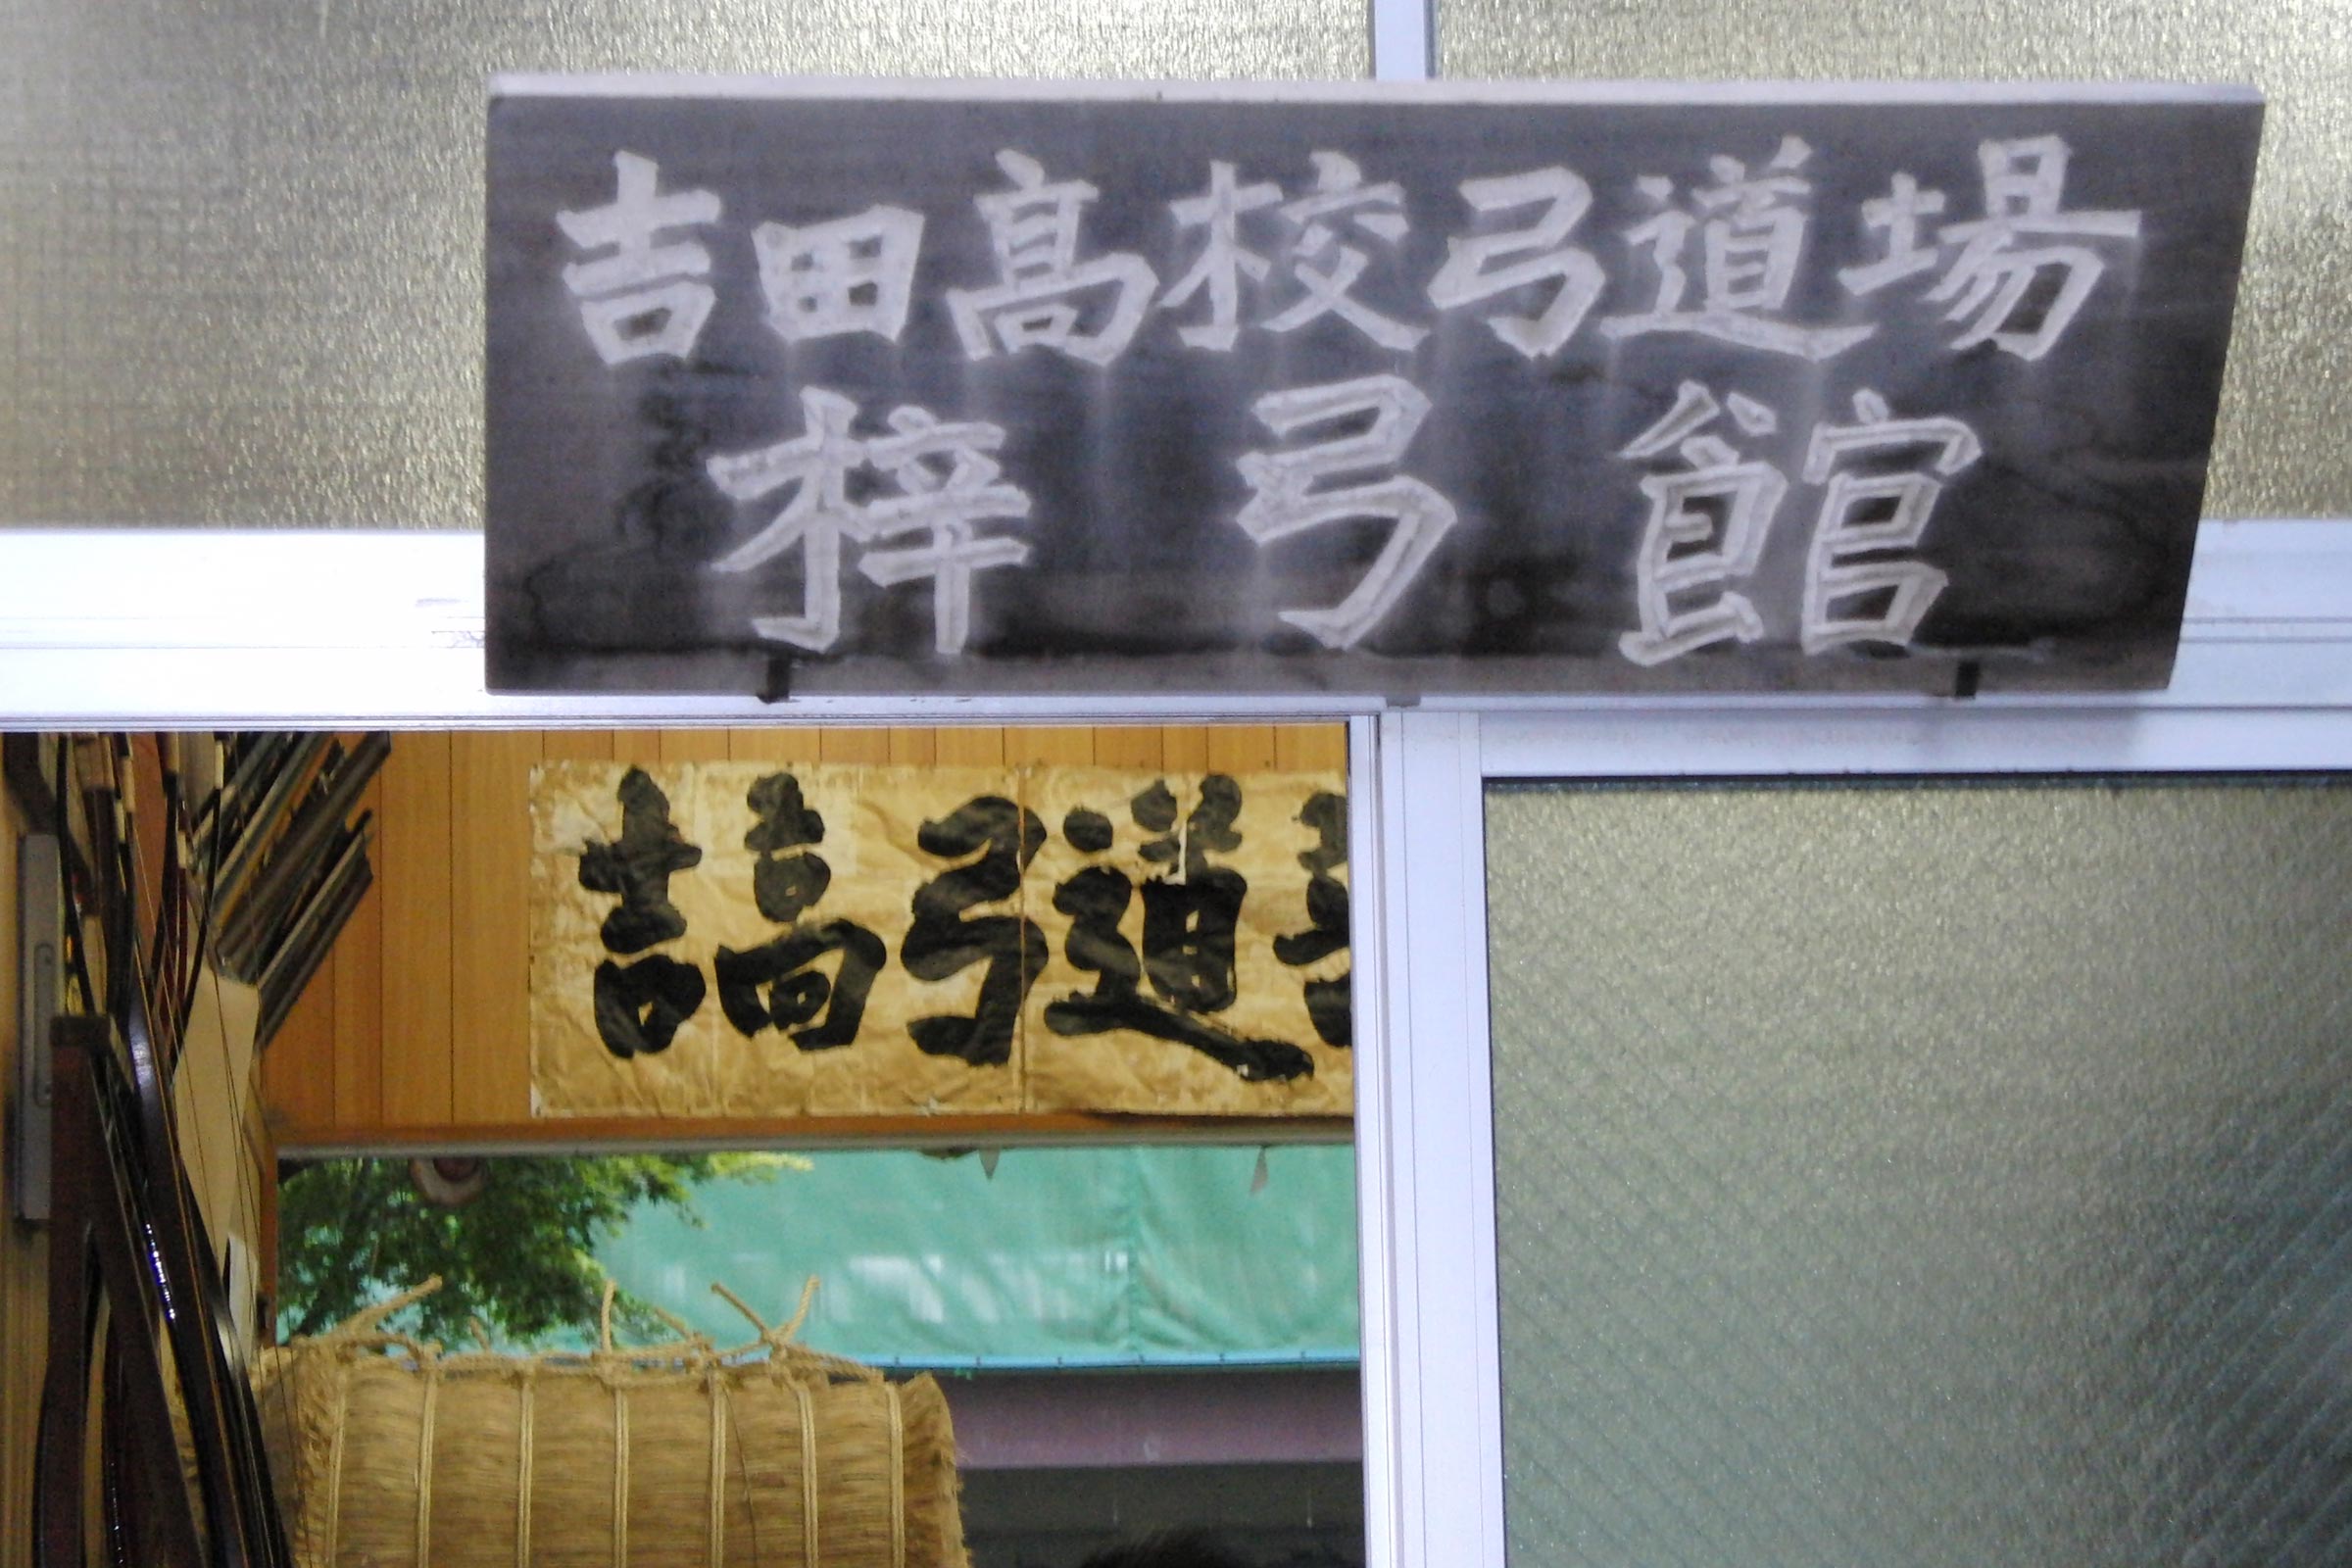 吉田髙校弓道場
梓弓館
吉高弓道